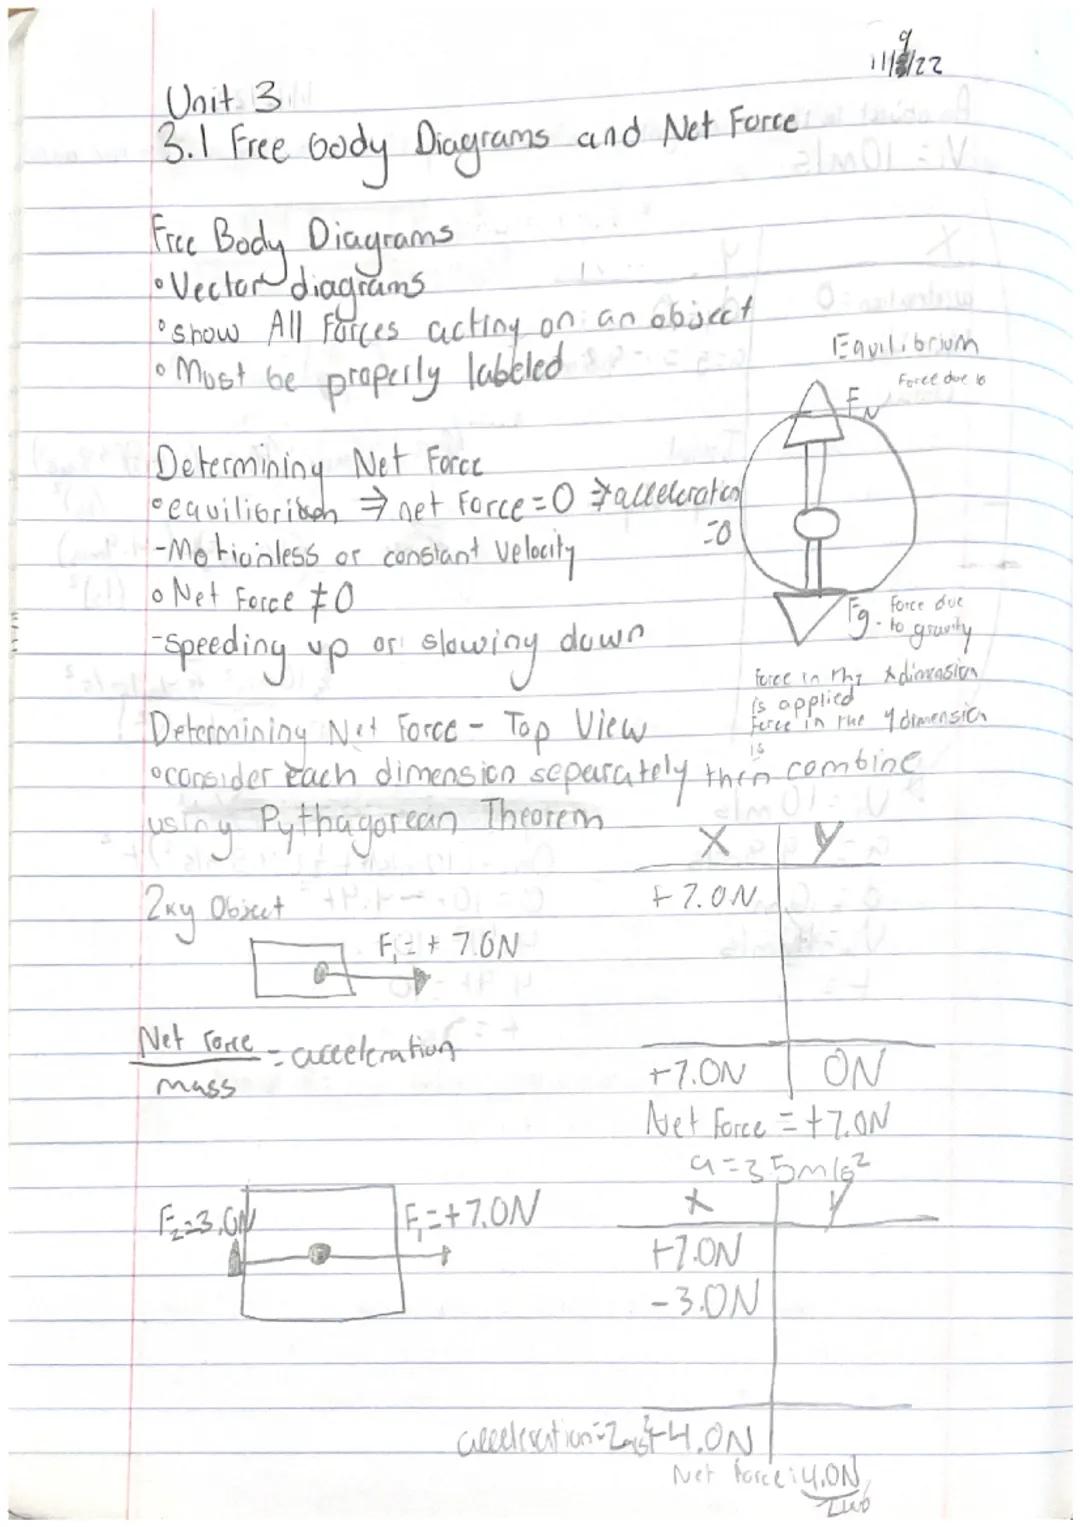 11/9/22
Unit 3
3.1 Free body Diagrams and Net Force
Free Body Diagrams
• Vector diagrams
• show All Forces acting on an object
• Must be properly labeled
Equilibrium
Force due to
FN
Determining Net Force
• equilibrium ⇒ net Force = 0 ⇒ acceleration
=0
- Motionless or constant velocity
• Net Force ≠ 0
Fg - Force due
to gravity
- Speeding up or slowing down
Force in the x dimension
is applied
Force in the y dimension
is
Determining Net Force - Top View
• consider each dimension separately then combine
using Pythagorean Theorem
X Y
2kg Object
+7.0N
F₁ = + 7.0N
Net Force = acceleration
mass
+7.0N 0N
Net Force = +7.0N
a = 3.5m/s²
X Y
F₂=3.0N F₁=+7.0N
+7.0N
-3.0N
acceleration = 2m/s² +4.0N
Net Force: 4.0N